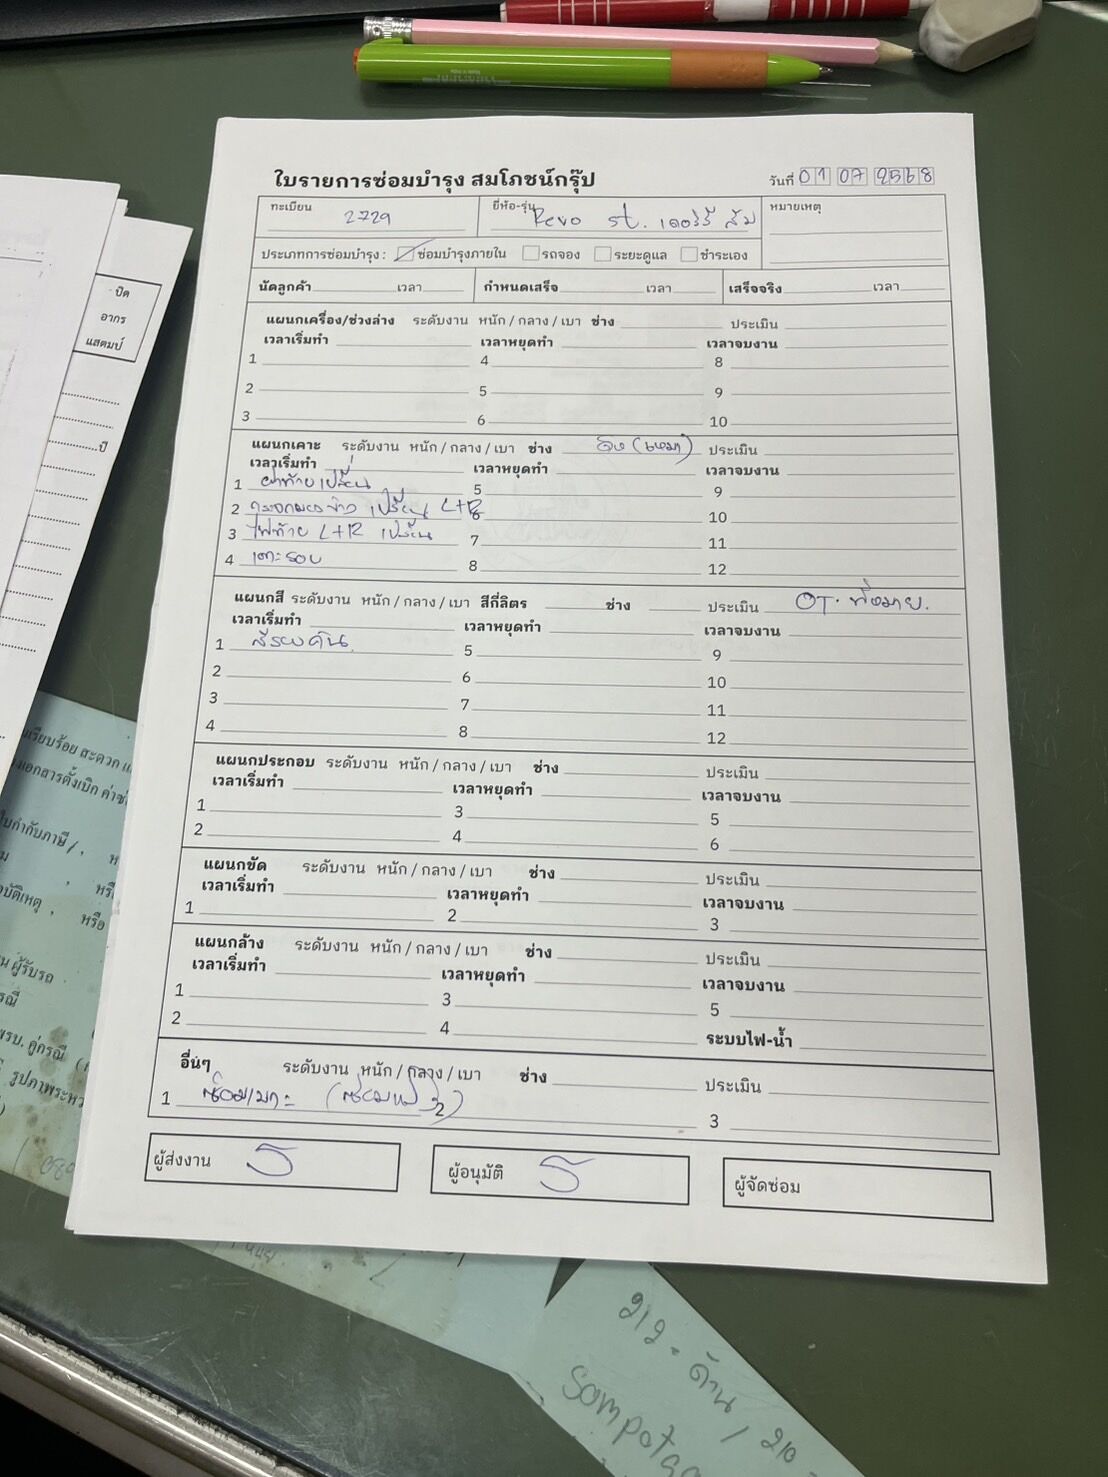 ใบรายการซ่อมบำรุง สมโภชน์กรุ๊ป
วันที่ 01 07 2568
ทะเบียน 2729
ยี่ห้อ-รุ่น Revo st.
หมายเหตุ
ประเภทการซ่อมบำรุง : ซ่อมบำรุงภายใน รถจอง ระยะดูแล ชำระเอง
นัดลูกค้า เวลา กำหนดเสร็จ เวลา เสร็จจริง เวลา
แผนกเครื่อง/ช่วงล่าง ระดับงาน หนัก / กลาง / เบา ช่าง ประเมิน
เวลาเริ่มทำ เวลาหยุดทำ เวลาจบงาน
1 4 8
2 5 9
3 6 10
แผนกเคาะ ระดับงาน หนัก / กลาง / เบา ช่าง (เหมา) ประเมิน
เวลาเริ่มทำ เวลาหยุดทำ เวลาจบงาน
1 ฝาท้ายเปลี่ยน 5 9
2 กระจกมองข้าง เปลี่ยน L+R 6 10
3 ไฟท้าย L+R เปลี่ยน 7 11
4 เคาะรอบ 8 12
แผนกสี ระดับงาน หนัก / กลาง / เบา สีกี่ลิตร ช่าง ประเมิน OT.
เวลาเริ่มทำ เวลาหยุดทำ เวลาจบงาน
1 สีรอบคัน 5 9
2 6 10
3 7 11
4 8 12
แผนกประกอบ ระดับงาน หนัก / กลาง / เบา ช่าง ประเมิน
เวลาเริ่มทำ เวลาหยุดทำ เวลาจบงาน
1 3 5
2 4 6
แผนกขัด ระดับงาน หนัก / กลาง / เบา ช่าง ประเมิน
เวลาเริ่มทำ เวลาหยุดทำ เวลาจบงาน
1 2 3
แผนกล้าง ระดับงาน หนัก / กลาง / เบา ช่าง ประเมิน
เวลาเริ่มทำ เวลาหยุดทำ เวลาจบงาน
1 3 5
2 4 ระบบไฟ-น้ำ
อื่นๆ ระดับงาน หนัก / กลาง / เบา ช่าง ประเมิน
1 2 3
ผู้ส่งงาน ผู้อนุมัติ ผู้จัดซ่อม
ปิด
อากร
แสตมป์
ปี
เรียบร้อย สะดวก
เอกสารตั้งเบิก
ใบกำกับภาษี
บัติเหตุ , หรือ
ผู้รับรถ
พรบ. คู่กรณี
212 - ด้าน / 210